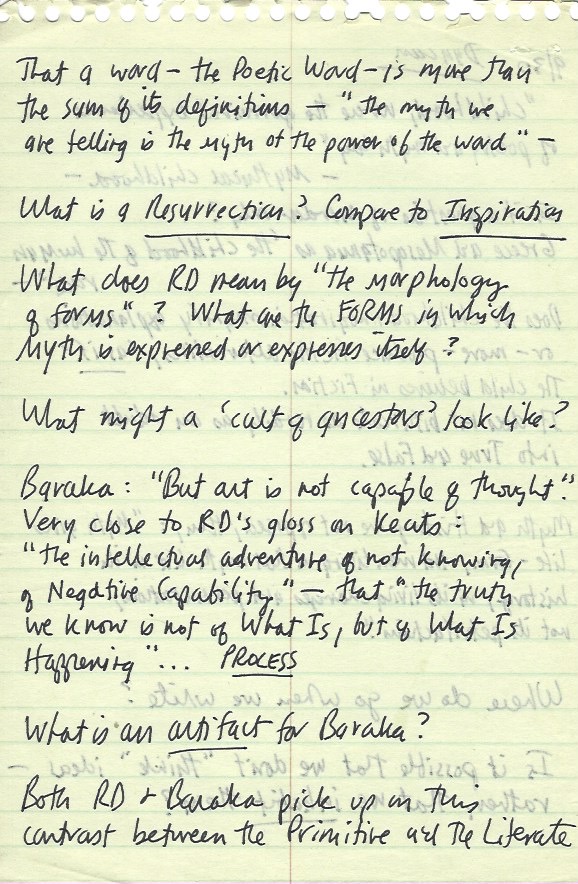 That a word – the Poetic Word – is more than
the sum of its definitions – "the myth we
are telling is the myth of the power of the word" –
What is a Resurrection? Compare to Inspiration
What does RD mean by "the morphology
of forms"? What are the FORMS in which
Myth is expressed or expresses itself?
What might a 'cult of ancestors' look like?
Baraka: "But art is not capable of thought."
Very close to RD's gloss on Keats:
"the intellectual adventure of not knowing,
of Negative Capability" – that "the truth
we know is not of What Is, but of What Is
Happening"... PROCESS
What is an artifact for Baraka?
Both RD + Baraka pick up on this
contrast between the Primitive and the Literate